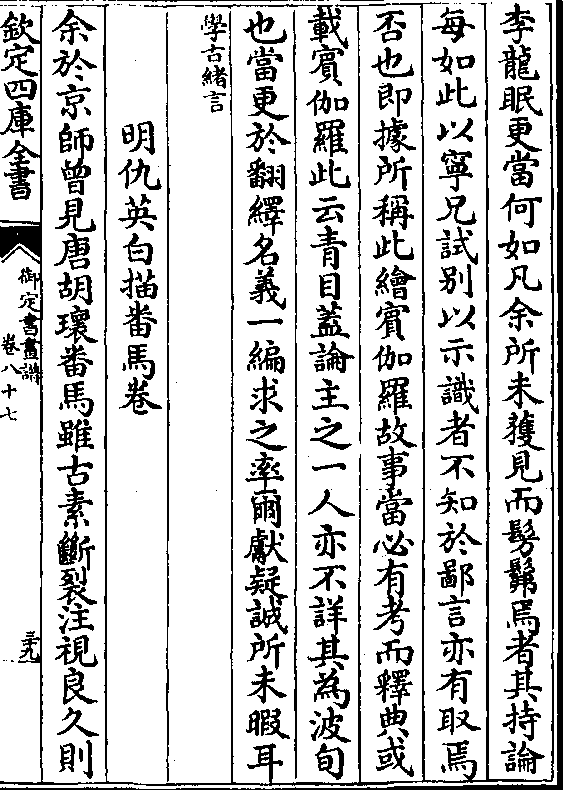 李龍眠更當何如凡余所未獲見而髣髴焉者其持論
每如此以寧兄試别以示識者不知於鄙言亦有取焉
否也即據所稱此繪賓伽羅故事當必有考而釋典或
載賓伽羅此云青目蓋論主之一人亦不詳其為波旬
也當更於翻繹名義一編求之率爾獻疑誠所未暇耳
學古緒言
明仇英白描番馬卷
余於京師曾見唐胡瓌番馬雖古素斷裂注視良久則
欽定四庫全書
御定書畫譜
卷八十七
三九